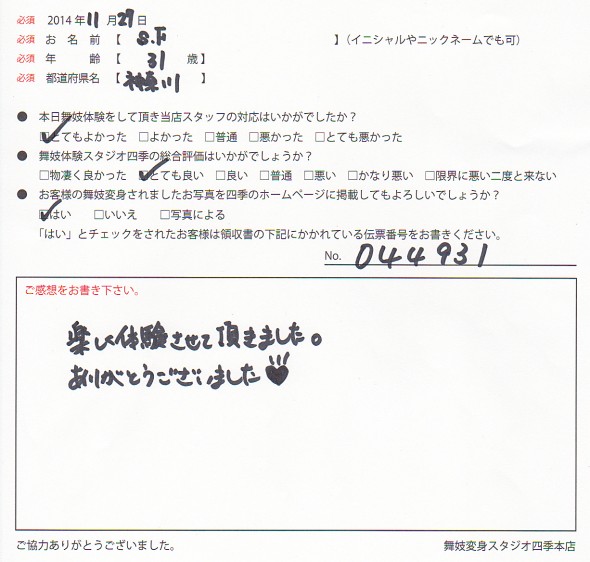 必須 2014年11月29日
必須 お名前【 S.F 】(イニシャルやニックネームでも可)
必須 年齢【 31 歳】
必須 都道府県名【神奈川】
● 本日舞妓体験をして頂き当店スタッフの対応はいかがでしたか?
☑とてもよかった □よかった □普通 □悪かった □とても悪かった
● 舞妓体験スタジオ四季の総合評価はいかがでしょうか?
□物凄く良かった ☑とても良い □良い □普通 □悪い □かなり悪い □限界に悪い二度と来ない
● お客様の舞妓変身されましたお写真を四季のホームページに掲載してもよろしいでしょうか?
☑はい □いいえ □写真による
「はい」とチェックをされたお客様は領収書の下記にかかれている伝票番号をお書きください。
No. 044931
ご感想をお書き下さい。
楽しく体験させて頂きました。
ありがとうございました♥
ご協力ありがとうございました。
舞妓変身スタジオ四季本店